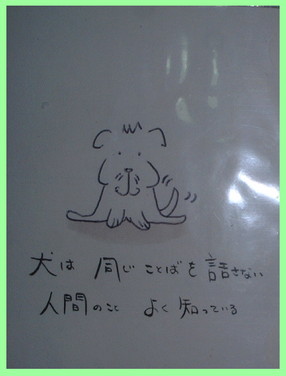 犬は 同じ ことばを 話さない
人間のこと よく 知っている